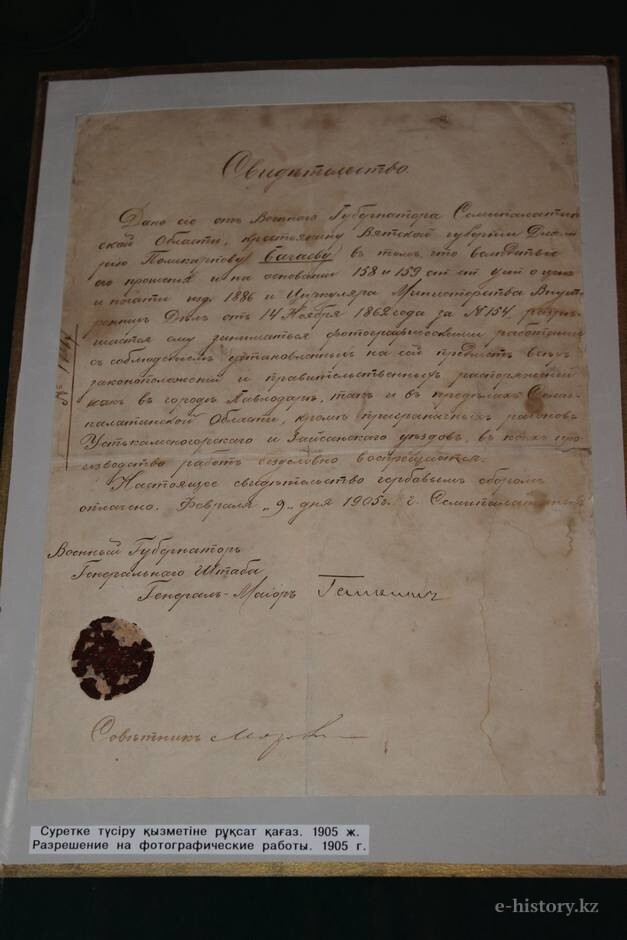 Свидѣтельство.
Дано сіе отъ Военнаго Губернатора Семипалатин-
ской Области, крестьянину Вятской губерніи Дмит-
рію Поликарпову Багаеву въ томъ, что вслѣдствіе
его прошенія и на основаніи 158 и 159 ст. ст. уст. о ценз.
и печати изд. 1886 и Циркуляра Министерства Внут-
реннихъ Дѣлъ отъ 14 Ноября 1862 года за № 154, разрѣ-
шается ему заниматься фотографическими работами
съ соблюденіемъ установленныхъ на сей предметъ всѣхъ
законоположеній и правительственныхъ распоряженій
какъ въ городѣ Павлодарѣ, такъ и въ предѣлахъ Семи-
палатинской Области, кромѣ приграничныхъ районовъ
Устькаменогорскаго и Зайсанскаго уѣздовъ, въ коихъ про-
изводство работъ безусловно воспрещается.
Настоящее свидѣтельство гербовымъ сборомъ
оплачено. Февраля „9„ дня 1905 г. г. Семипалатинскъ
№
Военный Губернаторъ
Генеральнаго Штаба
Генералъ-Маіоръ
Совѣтникъ
Суретке түсіру қызметіне рұқсат қағаз. 1905 ж.
Разрешение на фотографические работы. 1905 г.
e-history.kz